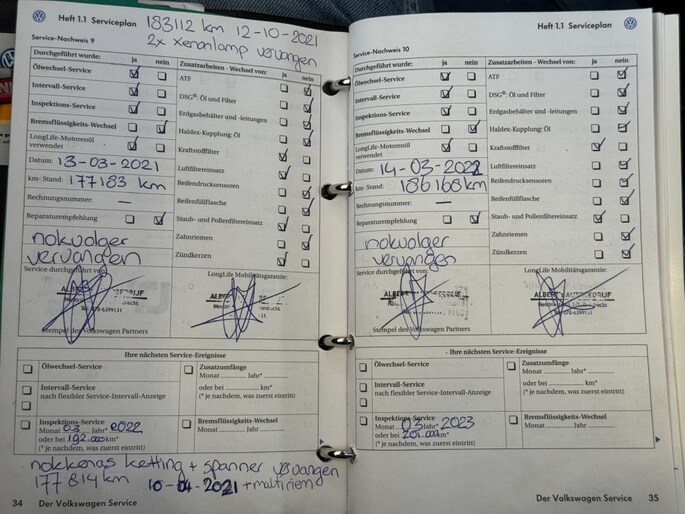 Heft 1.1 Serviceplan
183112 km 12-10-2021
2x xenonlamp vervangen
Service-Nachweis 9
Durchgeführt wurde: ja nein
Ölwechsel-Service
Intervall-Service
Inspektions-Service
Bremsflüssigkeits-Wechsel
LongLife-Motorenöl
verwendet
Datum: 13-03-2021
km-Stand: 177183 km
Rechnungsnummer: —
Reparaturempfehlung
nokvolger
vervangen
Zusatzarbeiten - Wechsel von: ja nein
ATF
DSG®: Öl und Filter
Erdgasbehälter und -leitungen
Haldex-Kupplung: Öl
Kraftstofffilter
Luftfiltereinsatz
Reifendrucksensoren
Reifenfüllflasche
Staub- und Pollenfiltereinsatz
Zahnriemen
Zündkerzen
Service durchgeführt von:
LongLife Mobilitätsgarantie:
Stempel des Volkswagen Partners
Ihre nächsten Service-Ereignisse
Ölwechsel-Service
Intervall-Service
nach flexibler Service-Intervall-Anzeige
Inspektions-Service
Monat 03 Jahr* 2022
oder bei 192.000 km*
(* je nachdem, was zuerst eintritt)
Zusatzumfänge
Monat Jahr*
oder bei km*
(* je nachdem, was zuerst eintritt)
Bremsflüssigkeits-Wechsel
Monat Jahr
nokkenas ketting + spanner vervangen
177814 km 10-04-2021 + multiriem
34 Der Volkswagen Service
Heft 1.1 Serviceplan
Service-Nachweis 10
Durchgeführt wurde: ja nein
Ölwechsel-Service
Intervall-Service
Inspektions-Service
Bremsflüssigkeits-Wechsel
LongLife-Motorenöl
verwendet
Datum: 14-03-2022
km-Stand: 186168km
Rechnungsnummer: —
Reparaturempfehlung
nokvolger
vervangen
Zusatzarbeiten - Wechsel von: ja nein
ATF
DSG®: Öl und Filter
Erdgasbehälter und -leitungen
Haldex-Kupplung: Öl
Kraftstofffilter
Luftfiltereinsatz
Reifendrucksensoren
Reifenfüllflasche
Staub- und Pollenfiltereinsatz
Zahnriemen
Zündkerzen
Service durchgeführt von:
LongLife Mobilitätsgarantie:
Stempel des Volkswagen Partners
Ihre nächsten Service-Ereignisse
Ölwechsel-Service
Intervall-Service
nach flexibler Service-Intervall-Anzeige
Inspektions-Service
Monat 03 Jahr* 2023
oder bei 201.000 km*
(* je nachdem, was zuerst eintritt)
Zusatzumfänge
Monat Jahr*
oder bei km*
(* je nachdem, was zuerst eintritt)
Bremsflüssigkeits-Wechsel
Monat Jahr
Der Volkswagen Service 35